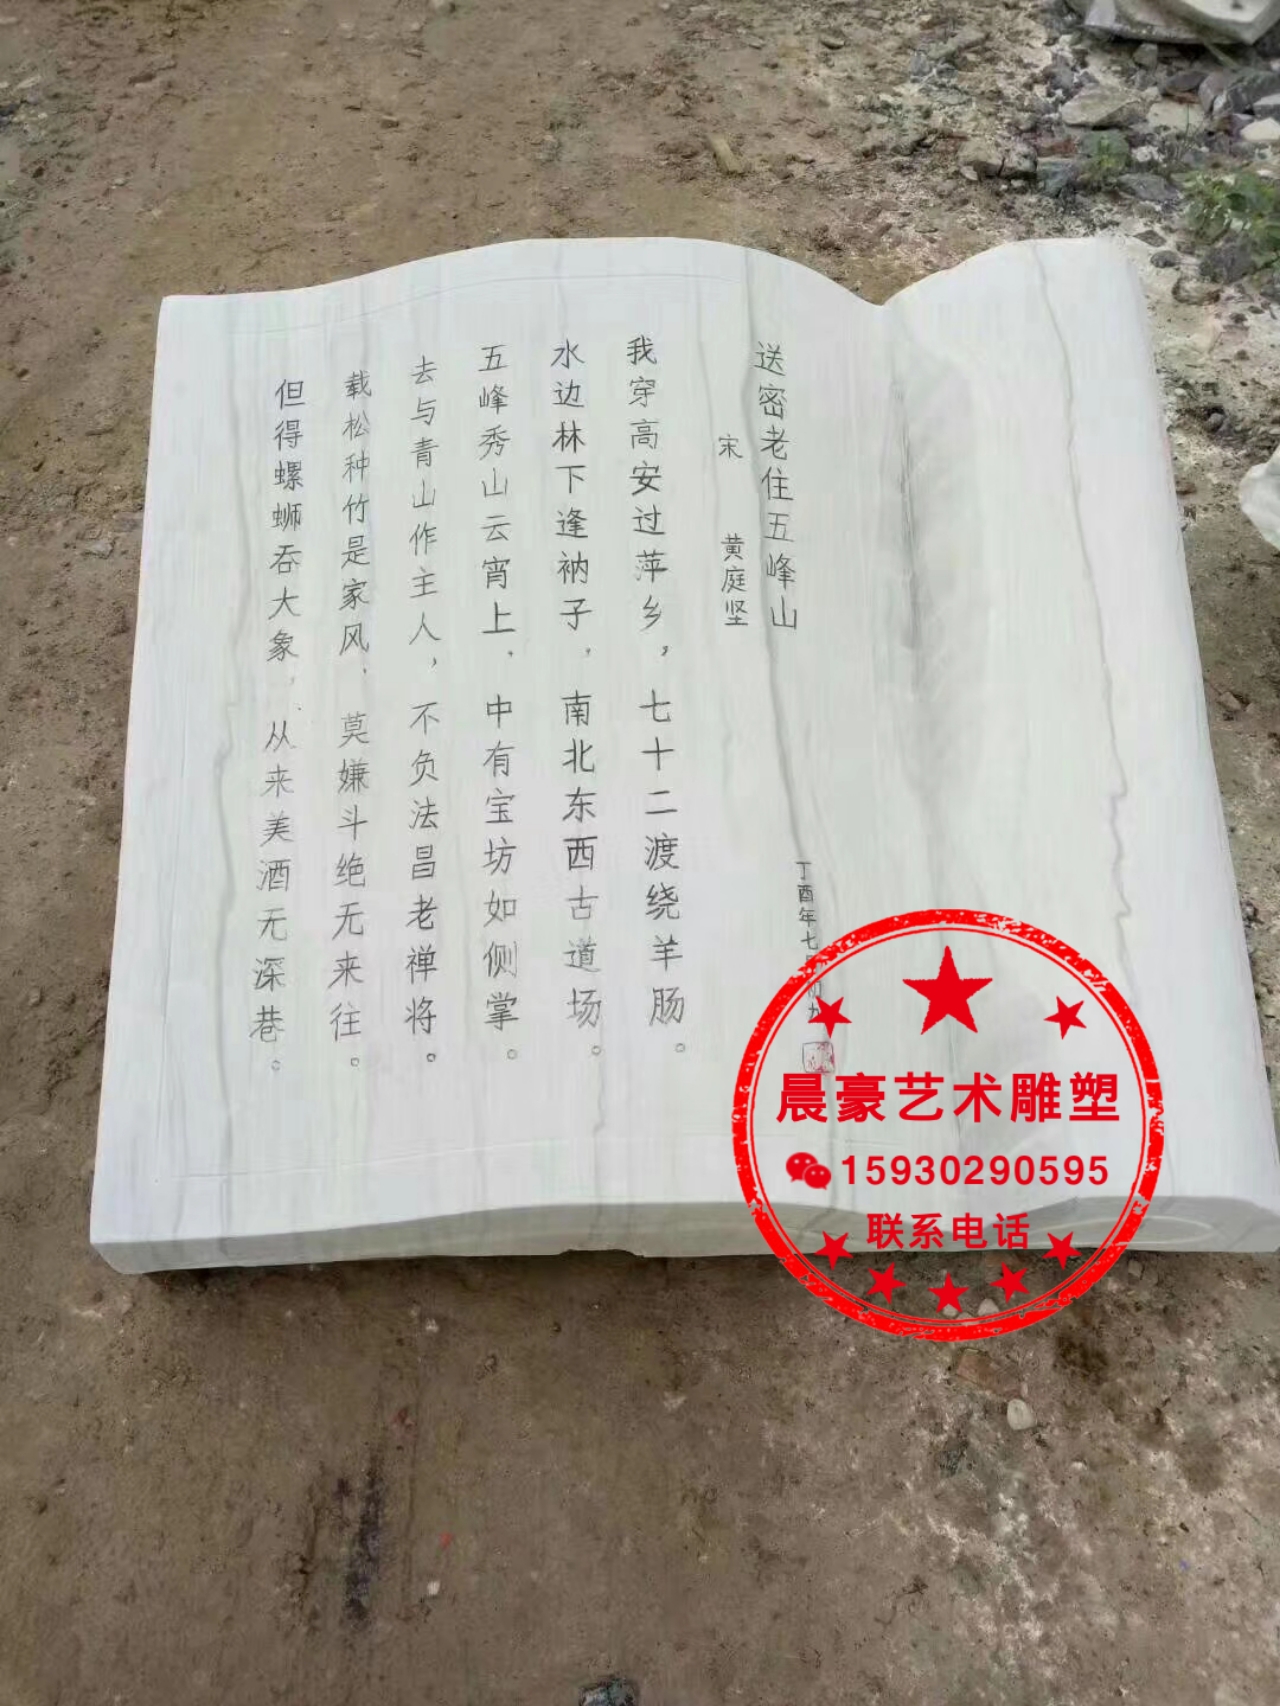 送密老住五峰山
宋 黄庭坚
我穿高安过萍乡，七十二渡绕羊肠。
水边林下逢衲子，南北东西古道场。
五峰秀山云宵上，中有宝坊如侧掌。
去与青山作主人，不负法昌老禅将。
载松种竹是家风，莫嫌斗绝无来往。
但得螺蛳吞大象，从来美酒无深巷。
丁酉年七月
晨豪艺术雕塑
15930290595
联系电话